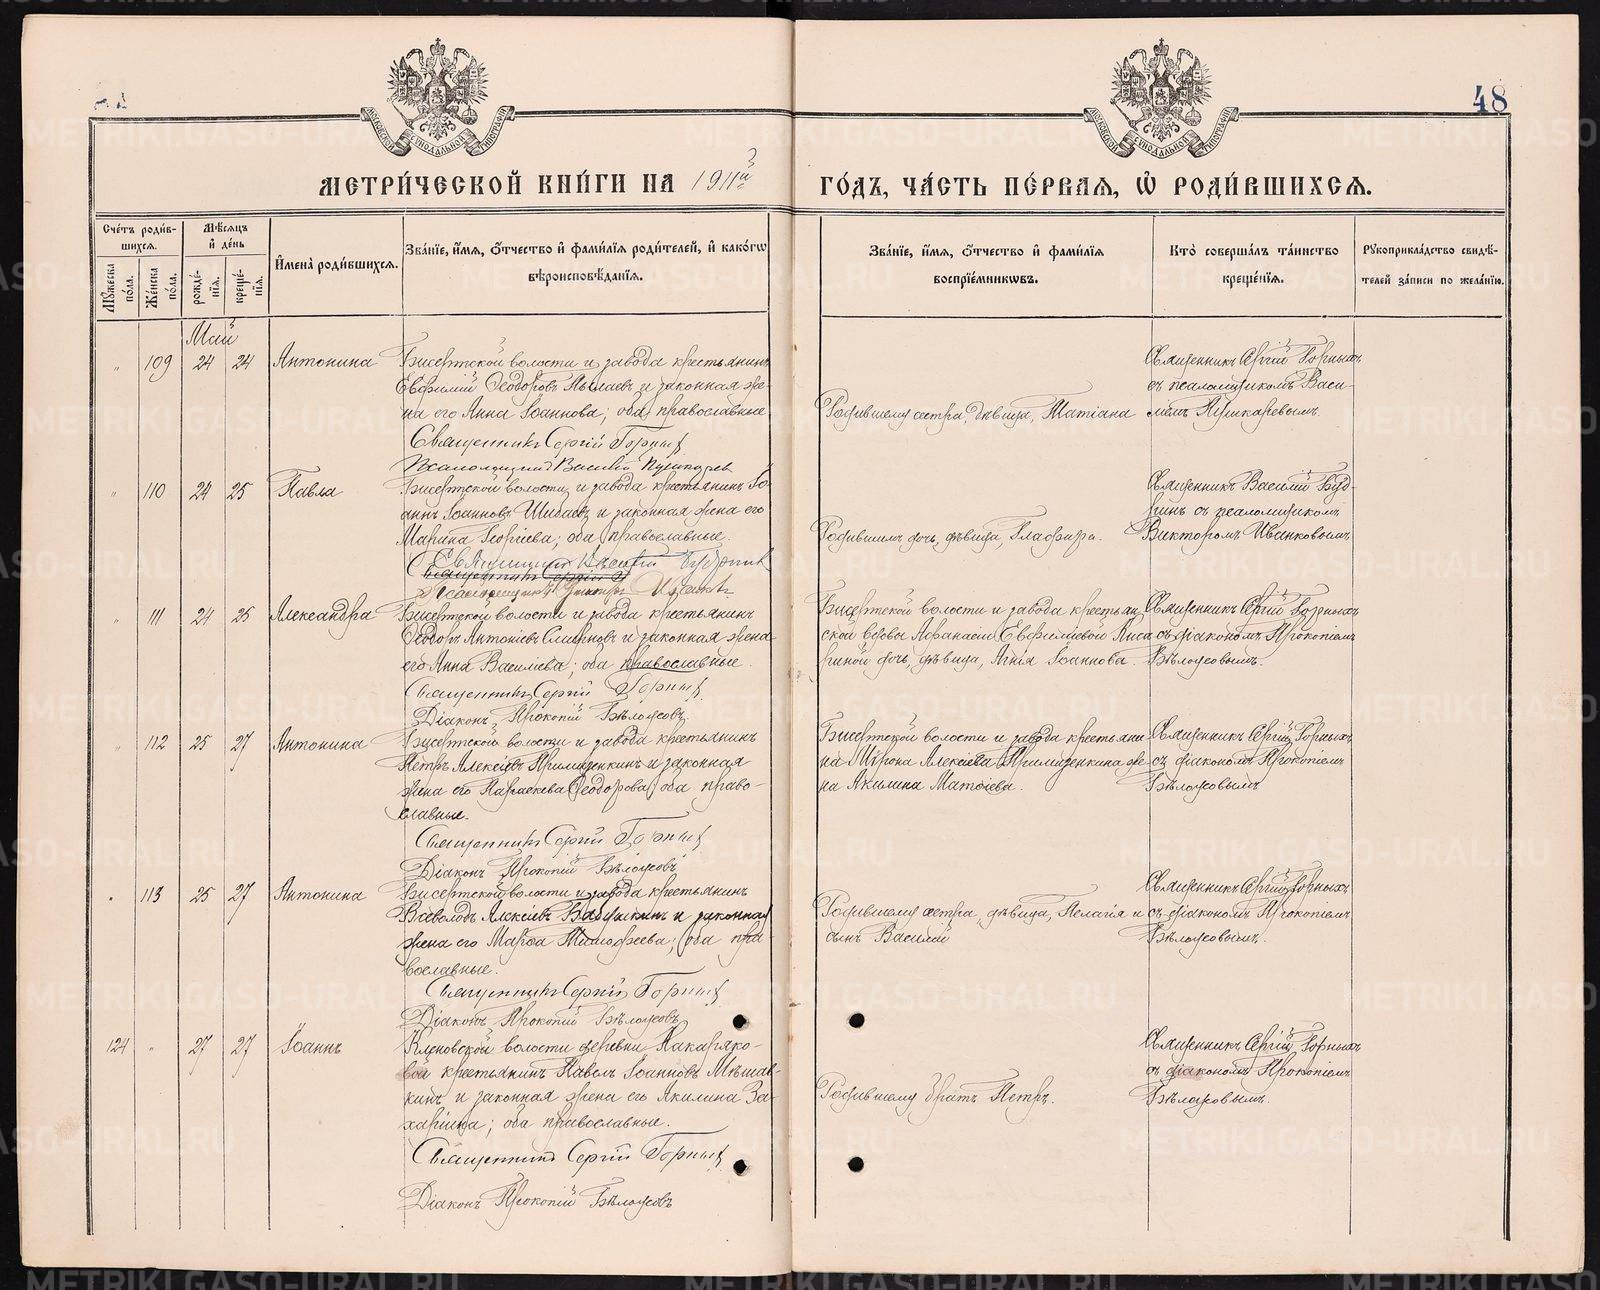 48
МЕТРИ́ЧЕСКОЙ КНИ́ГИ НА 1911й
ГО́ДЪ, ЧА́СТЬ ПЕ́РВАЯ, Ѡ҆ РОДИ́ВШИХСЯ.
Сче́тъ роди́в-
шихся.
Му́жеска по́ла.
Же́нска по́ла.
Мѣ́сяцъ
и҆ де́нь
рожде́-
нїя.
креще́-
нїя.
И҆мена̀ роди́вшихся.
Зва́нїе, и҆́мя, ѻ҆́тчество и҆ фами́лїя роди́телей, и҆ како́гѡ
вѣроисповѣ́данїя.
Зва́нїе, и҆́мя, ѻ҆́тчество и҆ фами́лїя
воспрїе́мникѡвъ.
Кто̀ соверша́лъ та́инство
креще́нїя.
Рꙋкоприкла́дство свидѣ́-
телей за́писи по жела́нїю.
Май
" 109 24 24 Антонина
Бисертской волости и завода крестьянинъ
Евфимий Ѳеодоровъ и законная же-
на его Анна Іоаннова; оба православные.
Священникъ Сергій Горныхъ
Псаломщикъ Василій Пушкаревъ
Родившему сестра, дѣвица, Татіана
Священникъ Сергій Горныхъ
съ псаломщикомъ Васи-
лемъ Пушкаревымъ.
" 110 24 25 Павла
Бисертской волости и завода крестьянинъ Іо-
аннъ Іоанновъ Шибаевъ и законная жена его
Марина Георгіева; оба православные.
Священникъ Василій
Священникъ Сергій
Псаломщикъ Викторъ
Родившимъ дочь, дѣвица, Глафира.
Священникъ Василій
съ псаломщикомъ
Викторомъ Иванковымъ
" 111 24 25 Александра
Бисертской волости и завода крестьянинъ
Ѳеодоръ Антоніевъ Смирновъ и законная жена
его Анна Василіева; оба православные.
Священникъ Сергій Горныхъ
Діаконъ Прокопій Бѣлоусовъ.
Бисертской волости и завода крестьян-
ской вдовы Афанасіи Евфиміевой
дочь, дѣвица, Агнія Іоаннова.
Священникъ Сергій Горныхъ
съ діакономъ Прокопіемъ
Бѣлоусовымъ.
" 112 25 27 Антонина
Бисертской волости и завода крестьянинъ
Петръ Алексіевъ и законная
жена его Параскева Ѳеодорова; оба право-
славные.
Священникъ Сергій Горныхъ
Діаконъ Прокопій Бѣлоусовъ
Бисертской волости и завода крестьяни-
на Мирона Алексіева же-
на Акилина Матѳіева.
Священникъ Сергій Горныхъ
съ діакономъ Прокопіемъ
Бѣлоусовымъ
" 113 25 27 Антонина
Бисертской волости и завода крестьянинъ
Всеволодъ Алексіевъ Бабушкинъ и законная
жена его Марѳа Тимоѳеева; оба пра-
вославные.
Священникъ Сергій Горныхъ
Діаконъ Прокопій Бѣлоусовъ
Родившему сестра, дѣвица, Пелагія и
сынъ Василій
Священникъ Сергій Горныхъ
съ діакономъ Прокопіемъ
Бѣлоусовымъ.
124 " 27 27 Іоаннъ
Кленовской волости деревни
крестьянинъ Павелъ Іоанновъ
и законная жена его Акилина За-
харіина; оба православные.
Священникъ Сергій Горныхъ
Діаконъ Прокопій Бѣлоусовъ
Родившему братъ Петръ.
Священникъ Сергій Горныхъ
съ діакономъ Прокопіемъ
Бѣлоусовымъ.
METRIKI.GASO-URAL.RU